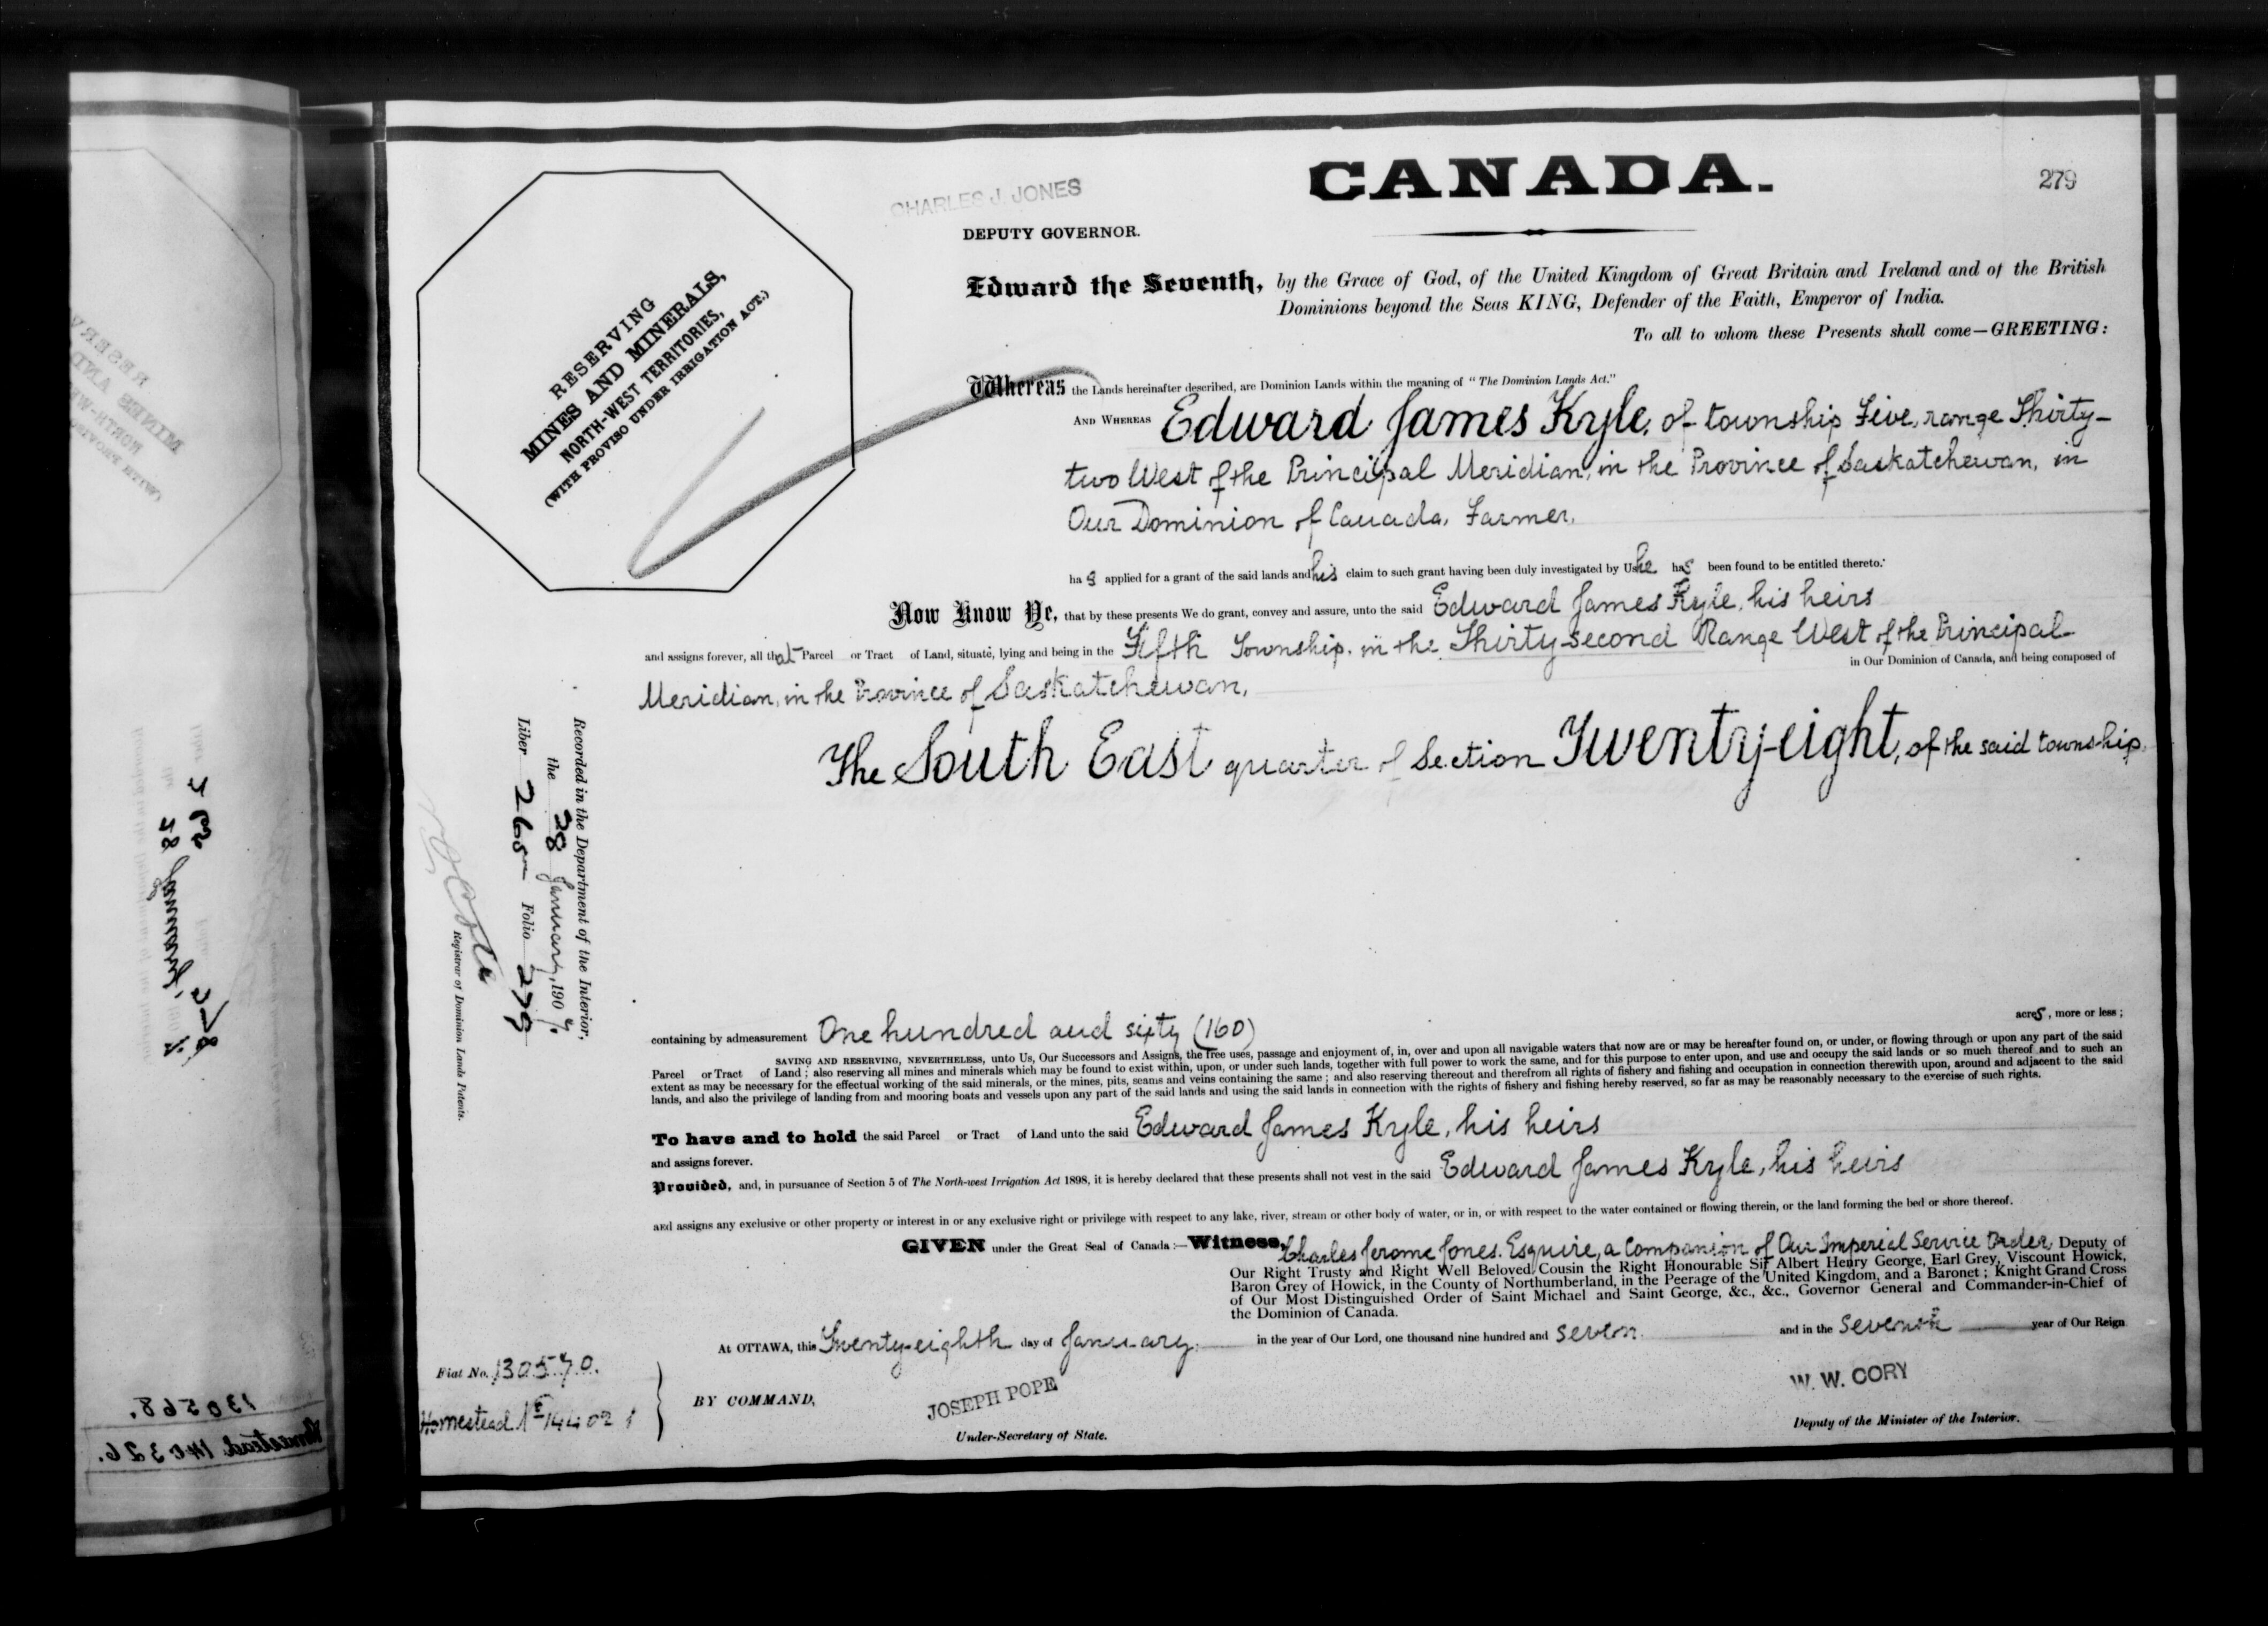 CANADA.
279
CHARLES J. JONES
DEPUTY GOVERNOR.
RESERVING
MINES AND MINERALS,
NORTH-WEST TERRITORIES,
(WITH PROVISO UNDER IRRIGATION ACT.)
Edward the Seventh, by the Grace of God, of the United Kingdom of Great Britain and Ireland and of the British
Dominions beyond the Seas KING, Defender of the Faith, Emperor of India.
To all to whom these Presents shall come—GREETING:
Whereas the Lands hereinafter described, are Dominion Lands within the meaning of "The Dominion Lands Act."
AND WHEREAS Edward James Kyle, of township Five, range Thirty-
two West of the Principal Meridian, in the Province of Saskatchewan, in
Our Dominion of Canada, Farmer,
has applied for a grant of the said lands and his claim to such grant having been duly investigated by Us he has been found to be entitled thereto:
Now Know Ye, that by these presents We do grant, convey and assure, unto the said Edward James Kyle, his heirs
and assigns forever, all that Parcel or Tract of Land, situate, lying and being in the Fifth Township, in the Thirty-second Range West of the Principal
in Our Dominion of Canada, and being composed of
Meridian, in the Province of Saskatchewan,
The South East quarter of Section Twenty-eight, of the said township,
Recorded in the Department of the Interior,
the 28 January, 1907.
Liber 265 Folio 279
Registrar of Dominion Lands Patents.
acres, more or less;
containing by admeasurement One hundred and sixty (160)
SAVING AND RESERVING, NEVERTHELESS, unto Us, Our Successors and Assigns, the free uses, passage and enjoyment of, in, over and upon all navigable waters that now are or may be hereafter found on, or under, or flowing through or upon any part of the said
Parcel or Tract of Land; also reserving all mines and minerals which may be found to exist within, upon, or under such lands, together with full power to work the same, and for this purpose to enter upon, and use and occupy the said lands or so much thereof and to such an
extent as may be necessary for the effectual working of the said minerals, or the mines, pits, seams and veins containing the same; and also reserving thereout and therefrom all rights of fishery and fishing and occupation in connection therewith upon, around and adjacent to the said
lands, and also the privilege of landing from and mooring boats and vessels upon any part of the said lands and using the said lands in connection with the rights of fishery and fishing hereby reserved, so far as may be reasonably necessary to the exercise of such rights.
To have and to hold the said Parcel or Tract of Land unto the said Edward James Kyle, his heirs
and assigns forever.
Provided, and, in pursuance of Section 5 of The North-west Irrigation Act 1898, it is hereby declared that these presents shall not vest in the said Edward James Kyle, his heirs
and assigns any exclusive or other property or interest in or any exclusive right or privilege with respect to any lake, river, stream or other body of water, or in, or with respect to the water contained or flowing therein, or the land forming the bed or shore thereof.
GIVEN under the Great Seal of Canada:—Witness, Charles Jerome Jones, Esquire, a Companion of Our Imperial Service Order, Deputy of
Our Right Trusty and Right Well Beloved Cousin the Right Honourable Sir Albert Henry George, Earl Grey, Viscount Howick,
Baron Grey of Howick, in the County of Northumberland, in the Peerage of the United Kingdom, and a Baronet; Knight Grand Cross
of Our Most Distinguished Order of Saint Michael and Saint George, &c., &c., Governor General and Commander-in-Chief of
the Dominion of Canada.
At OTTAWA, this Twenty-eighth day of January, in the year of Our Lord, one thousand nine hundred and seven. and in the Seventh year of Our Reign
Fiat No. 130570.
Homestead
BY COMMAND,
JOSEPH POPE
Under-Secretary of State.
W. W. CORY
Deputy of the Minister of the Interior.
130568.
Homestead 140326.